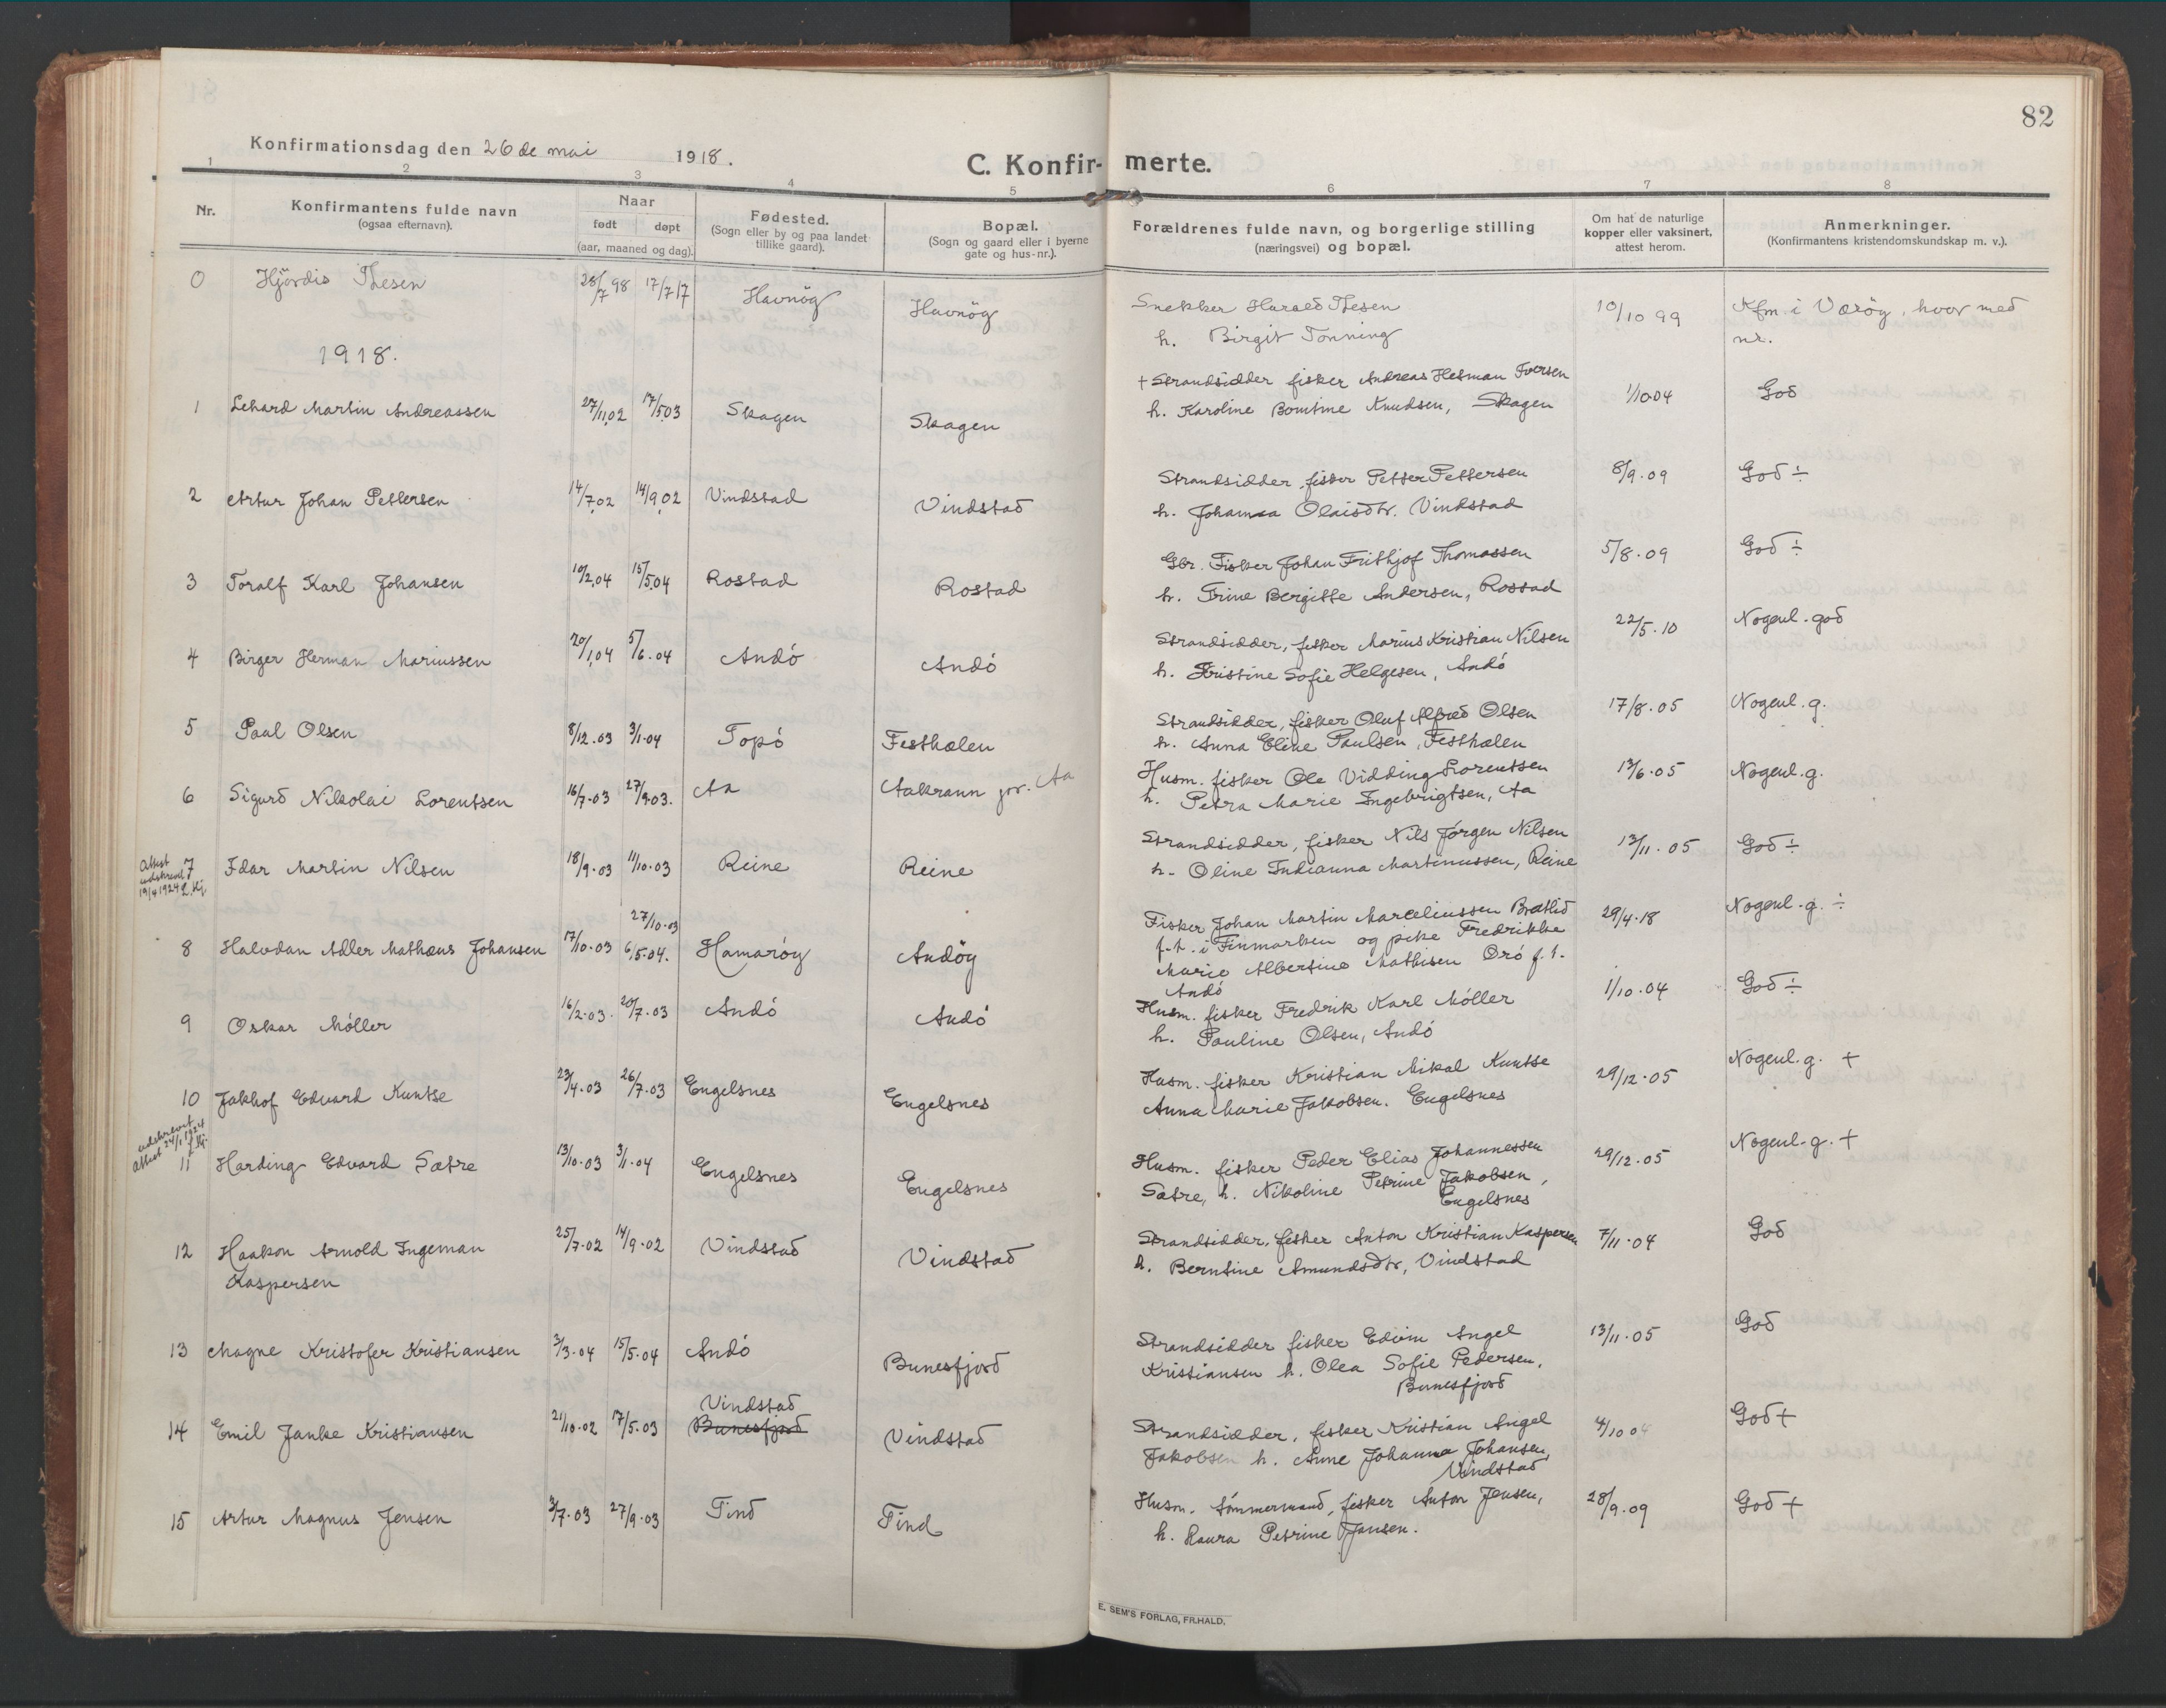 82
Konfirmationsdag den 26de mai 1918.
C. Konfir- merte.
1 2 3 4 5 6 7 8
Nr.
Konfirmantens fulde navn
(ogsaa efternavn).
Naar
født døpt
(aar, maaned og dag).
Fødested.
(Sogn eller by og paa landet
tillike gaard).
Bopæl.
(Sogn og gaard eller i byerne
gate og hus-nr.).
Forældrenes fulde navn, og borgerlige stilling
(næringsvei) og bopæl.
Om hat de naturlige
kopper eller vaksinert,
attest herom.
Anmerkninger.
(Konfirmantens kristendomskundskap m. v.).
0 Hjördis Thesen 28/7 98 17/7 17 Havnög Havnög
Snekker Harald Thesen 10/10 99 Kfm. i Værøy, hvor med
h. Birgit Tonning nr.
1918.
1 Lehard Martin Andreassen 27/11.02 17/5.03 Skagen Skagen
+ Strandsidder fisker Andreas Hetman Iversen 1/10.04 God
h. Karoline Bomtine Knudsen, Skagen
2 Artur Johan Pettersen 14/7.02 14/9.02 Vindstad Vindstad
Strandsidder, fisker Petter Pettersen 8/9.09 God ÷
h. Johanna Olaisdtr. Vindstad
3 Toralf Karl Johansen 10/2.04 15/5.04 Rostad Rostad
Gbr. Fisker Johan Frithjof Thomassen 5/8.09 God ÷
h. Trine Bergitte Andersen, Rostad
4 Birger Herman Mariussen 20/1.04 5/6.04 Andó Andó
Strandsidder, fisker Marius Kristian Nilsen 22/5.10 Nogenl. god
h. Kristine Sofie Helgesen, Andó
5 Paul Olsen 8/12.03 3/1.04 Topó Festhælen
Strandsidder, fisker Oluf Alfred Olsen 17/8.05 Nogenl. g.
h. Anna Eline Paulsen, Festhælen
6 Sigurd Nikolai Lorentsen 16/7.03 27/9.03. Aa Aakrann pr. Aa
Husm. fisker Ole Vidding Lorentsen 13/6.05 Nogenl. g.
h. Petra Marie Ingebrigtsen, Aa
Attest
udskrevet
19/4 1924 L. Hj.
7 Idar Martin Nilsen 18/9.03 11/10.03 Reine Reine
Strandsidder, fisker Nils Jórgen Nilsen 13/11.05 God ÷
h. Oline Indianna Martinussen, Reine
8 Halvdan Adler Mathæus Johansen 17/10.03 27/10.03 6/5.04. Hamaröy Andöy
Fisker Johan Martin Marceliussen Brætlid 29/4.18 Nogenl. g. ÷
f.t. i Finmarken og pike Fredrikke
Marie Albertine Mathisen Oró f.t.
Andó
9 Oskar Móller 16/2.03. 20/7.03 Andó Andó
Husm. fisker Fredrik Karl Móller 1/10.04 God ÷
h. Pauline Olsen, Andó
10 Jakhof Edvard Kuntse 23/4.03 26/7.03 Engelsnes Engelsnes
Husm. fisker Kristian Mikal Kuntse 29/12.05 Nogenl. g. +
Anna Marie Jakobsen. Engelsnes
udskrevet
Attest 24/1 1924
L. Hj.
11 Harding Edvard Sætre 13/10.03 3/1.04 Engelsnes Engelsnes
Husm. fisker Peder Elias Johannessen 29/12.05 Nogenl. g. +
Sætre, h. Nikoline Petrine Jakobsen,
Engelsnes
12 Haakon Arnold Ingeman 25/7.02 14/9.02 Vindstad Vindstad
Kaspersen
Strandsidder, fisker Anton Kristian Kaspersen 7/11.04 God
h. Berntine Amundsdtr, Vindstad
13 Magne Kristofer Kristiansen 3/3.04 15/5.04 Andó Bunesfjord
Strandsidder fisker Edvin Angel 13/11.05 God
Kristiansen h. Olea Sofie Pedersen,
Bunesfjord
14 Emil Janke Kristiansen 21/10.02 17/5.03 Vindstad Bunesfjord Vindstad
Strandsidder, fisker Kristian Angel 4/10 04 God +
Jakobsen h. Anne Johanna Johansen,
Vindstad
15 Artur Magnus Jensen 3/7.03 27/9.03 Tind Tind
Husm. tómmermand, fisker Anton Jensen, 28/9.09 God +
h. Laura Petrine Jansen.
E. SEM'S FORLAG, FR.HALD.